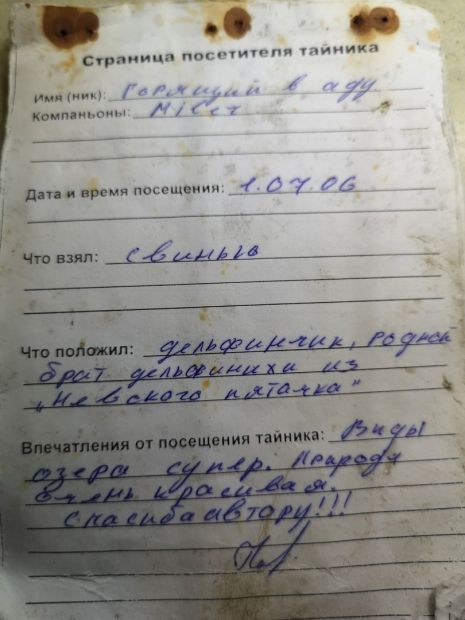 Страница посетителя тайника
Имя (ник): Горящий в аду
Компаньоны:
Дата и время посещения: 1.07.06
Что взял: свинью
Что положил: дельфинчик, родной
брат дельфинихи из
„Невского пятачка"
Впечатления от посещения тайника: Виды
озера супер. Природа
очень красивая.
Спасиба автору!!!